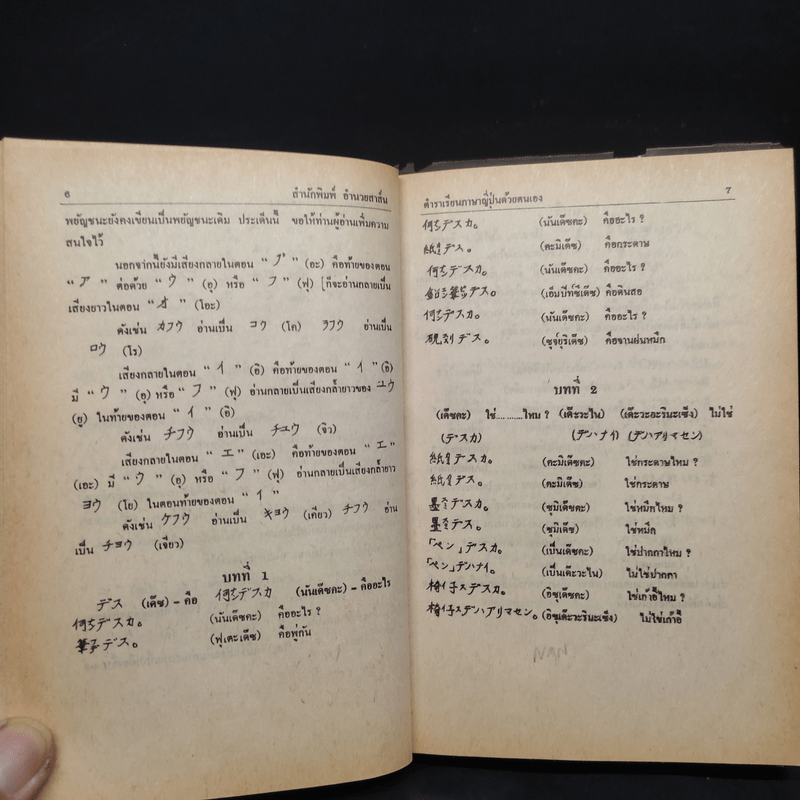 6 สำนักพิมพ์ อำนวยสาส์น
พยัญชนะยังคงเขียนเป็นพยัญชนะเดิม ประเด็นนี้ ขอให้ท่านผู้อ่านเพิ่มความ
สนใจไว้
นอกจากนี้ยังมีเสียงกลายในตอน “ ア ” (อะ) คือท้ายของตอน
“ ア ” ต่อด้วย “ ウ ” (อุ) หรือ “ フ ” (ฟุ) ก็จะอ่านกลายเป็น
เสียงยาวในตอน “ オ ” (โอะ)
ดังเช่น カフウ อ่านเป็น コウ (โค) ラフウ อ่านเป็น
ロウ (โร)
เสียงกลายในตอน “ イ ” (อิ) คือท้ายของตอน “ イ ” (อิ)
มี “ ウ ” (อุ) หรือ “ フ ” (ฟุ) อ่านกลายเป็นเสียงกล้ำยาวของ ユウ
(ยู) ในท้ายของตอน “ イ ” (อิ)
ดังเช่น チフウ อ่านเป็น チユウ (จิว)
เสียงกลายในตอน “ エ ” (เอะ) คือท้ายของตอน “ エ ”
(เอะ) มี “ ウ ” (อุ) หรือ “ フ ” (ฟุ) อ่านกลายเป็นเสียงกล้ำยาว
ヨウ (โย) ในตอนท้ายของตอน “ イ ”
ดังเช่น ケフウ อ่านเป็น キョウ (เคียว) チフウ อ่าน
เป็น チヨウ (เจียว)
บทที่ 1
デス (เด๊ซ) – คือ 何デスカ (นันเด๊ซคะ) – คืออะไร
何デスカ。 (นันเด๊ซคะ) คืออะไร ?
筆デス。 (ฟุเดะเด๊ซ) คือพู่กัน
ตำราเรียนภาษาญี่ปุ่นด้วยตนเอง 7
何デスカ。 (นันเด๊ซคะ) คืออะไร ?
紙デス。 (คะมิเด๊ซ) คือกระดาษ
何デスカ。 (นันเด๊ซคะ) คืออะไร ?
鉛筆デス。 (เอ็มปิท์ซึเด๊ซ) คือดินสอ
何デスカ。 (นันเด๊ซคะ) คืออะไร ?
硯デス。 (ซุจึยุริเด๊ซ) คือจานฝนหมึก
บทที่ 2
(เด๊ซคะ) ใช่..........ไหม ? (เด๊ะวะไน) (เด๊ะวะอะรินะเซ็ง) ไม่ใช่
(デスカ) (デハナイ) (デハアリマセン)
紙デスカ。 (คะมิเด๊ซคะ) ใช่กระดาษไหม ?
紙デス。 (คะมิเด๊ซ) ใช่กระดาษ
墨デスカ。 (ซุมิเด๊ซคะ) ใช่หมึกไหม ?
墨デス。 (ซุมิเด๊ซ) ใช่หมึก
「ペン」デスカ。 (เป็นเด๊ซคะ) ใช่ปากกาไหม ?
「ペン」デハナイ。 (เป็นเด๊ะวะไน) ไม่ใช่ปากกา
椅子デスカ。 (อิซุเด๊ซคะ) ใช่เก้าอี้ไหม ?
椅子デハアリマセン。 (อิซุเด๊ะวะรินะเซ็ง) ไม่ใช่เก้าอี้